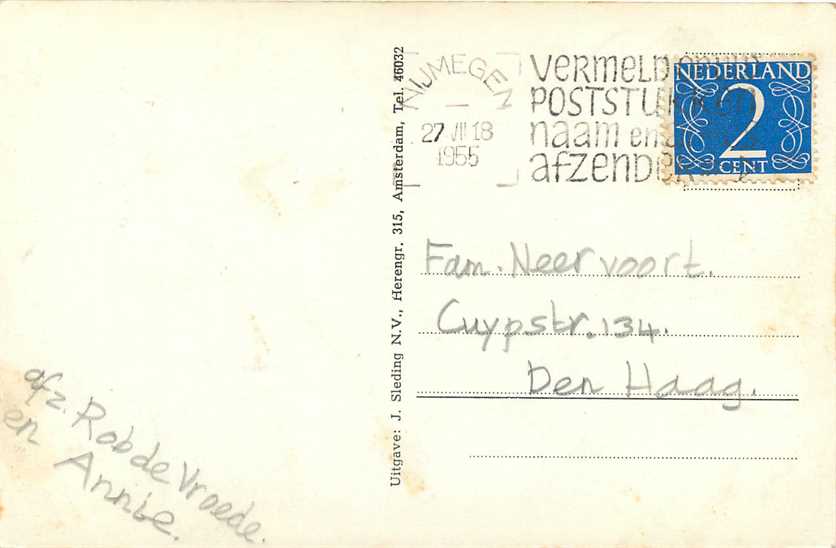 NIJMEGEN
27 VII 18
1955
VERMELD OP UW
POSTSTUKKEN
naam en
afzender
NEDERLAND
2
CENT
Uitgave: J. Sleding N.V., Herengr. 315, Amsterdam, Tel. 46032
Fam. Neervoort.
Cuypstr. 134.
Den Haag.
afz. Rob de Vroede.
en Annie.